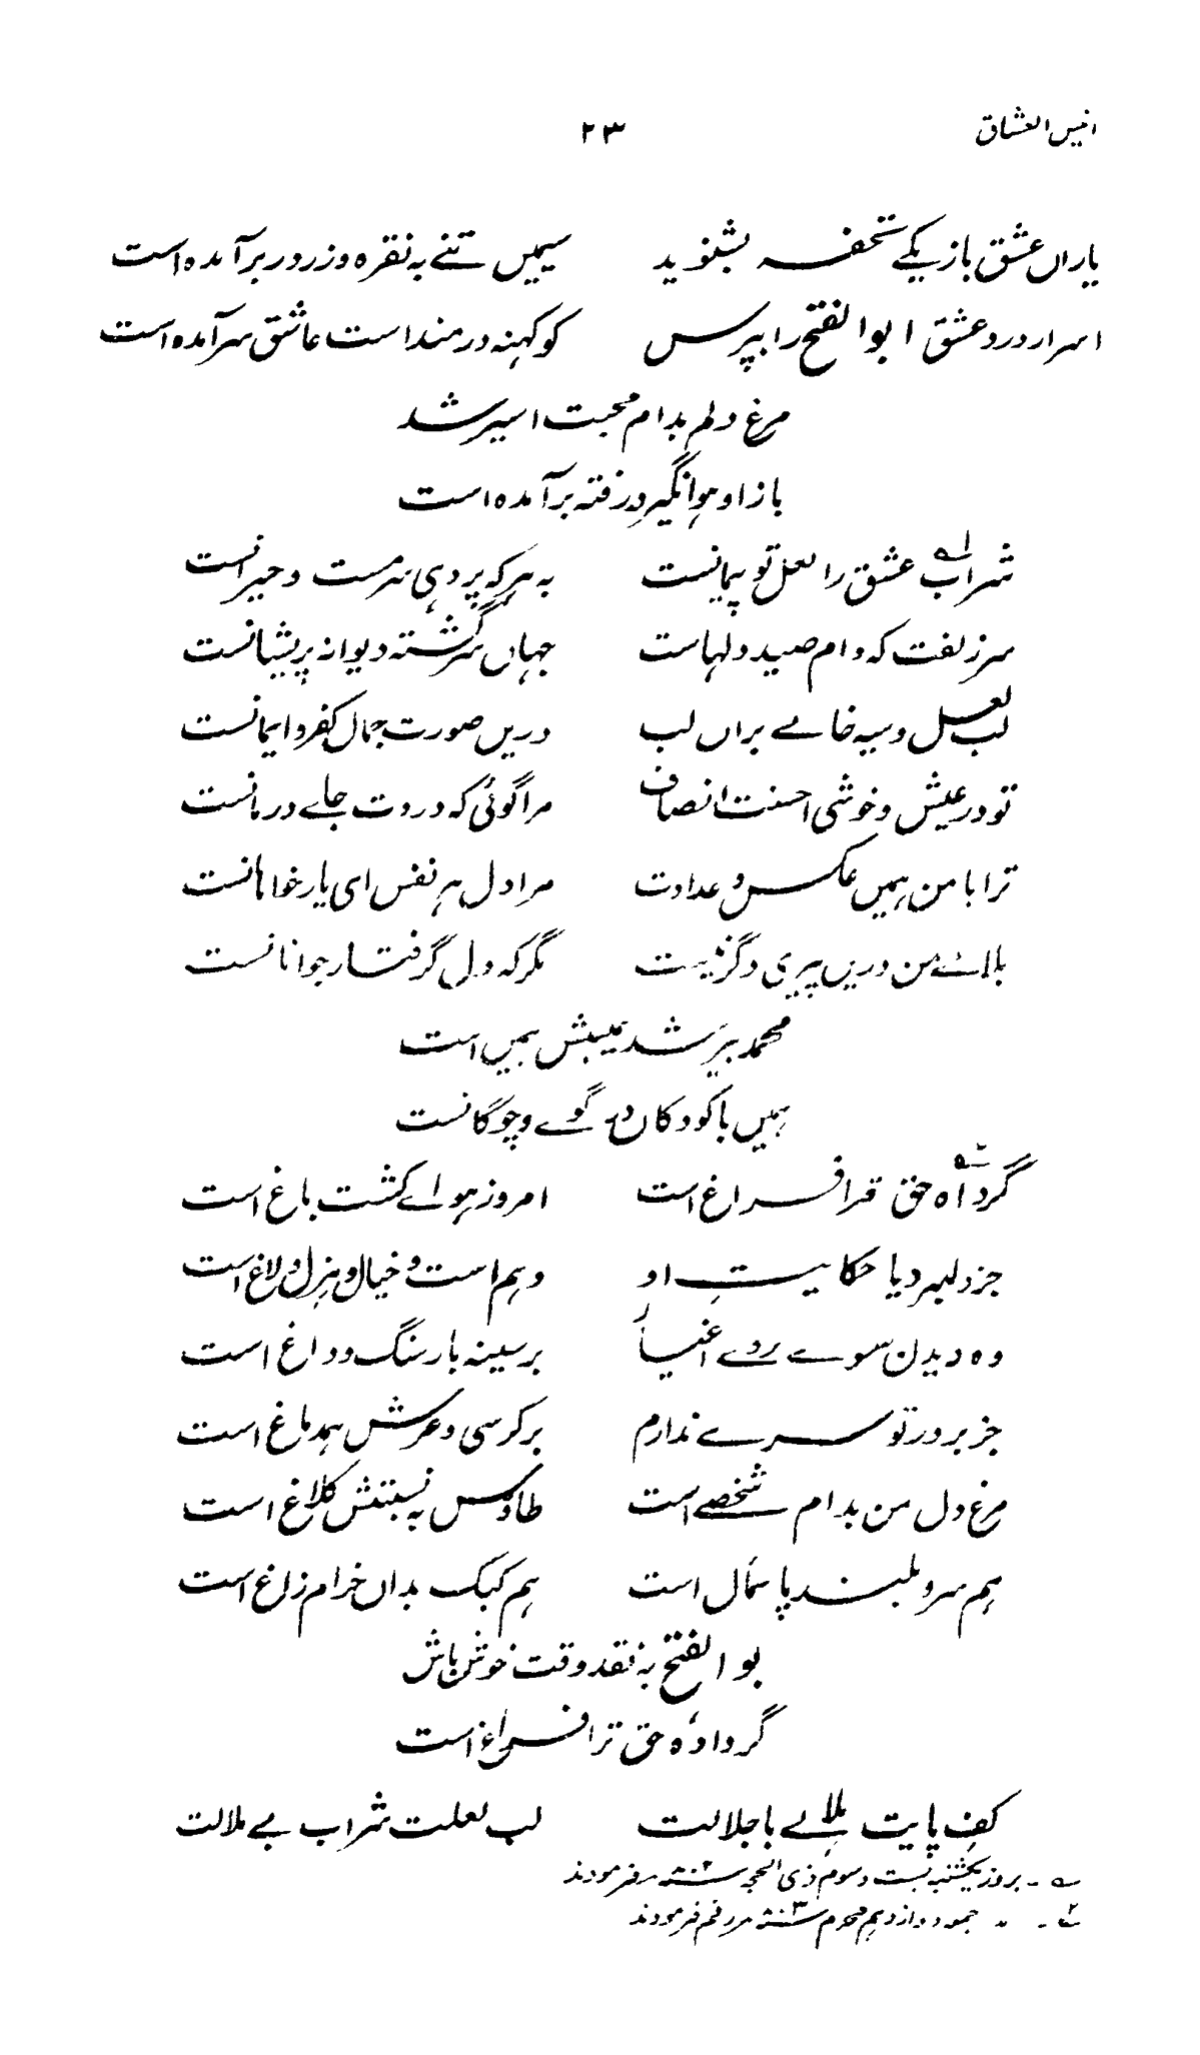 انیس العشاق ۲۳
یاراں عشق باز یکے تحفہ بشنوید سیمیں تنے بہ نقرہ و زر در بر آمدہ است
اسرار درد عشق ابوالفتح را بپرس کو کہنہ درمند است عاشق سر آمدہ است
مرغ دلم بدام محبت اسیر شد
باز او ہوا نگیرد رفتہ بر آمدہ است
شراب عشق را لعل تو پیمانست بہ ہر کہ پر دہی سرمست و حیرانست
سر زلفت کہ دام صید دلہاست جہاں سرگشتہ دیوانہ پریشانست
لب لعل و سیہ خالے براں لب دریں صورت جمال کفر و ایمانست
تو در عیش و خوشی احسنت انصاف مرا گوئی کہ دردت جاے درمانست
ترا با من ہمیں عکس و عداوت مرا دل ہر نفس ای یار خواہانست
بلاے من دریں پیری دگر نیست مگر کہ دل گرفتار جوانانست
محمد پیر شد عیبش ہمیں است
ہمیں با کودکاں در گوے و چوگانست
گرد ادہ حق ترا فراغ است امروز ہواے کشت باغ است
جز دلبر و یا حکایت او وہم است و خیال و ہزل و لاغ است
وہ دیدن سوے روے اغیار بر سینہ بار سنگ و داغ است
جز بر در تو سرے ندارم بر کرسی و عرش ہم دماغ است
مرغ دل من بدام شخصے است طاؤس بہ نسبتش کلاغ است
ہم سرو بلند پائمال است ہم کبک بداں خرام زاغ است
بوالفتح بہ نقد وقت خوش باش
گر دادہ حق ترا فراغ است
کف پایت بلاے با جلالت لب لعلت شراب بے ملالت
۱ - بروز یکشنبہ بست و سوم ذی الحجہ سنہ ۸۰۲ فرمودند
۲ - ״ جمعہ دوازدہم محرم سنہ ۸۰۳ فرمودند